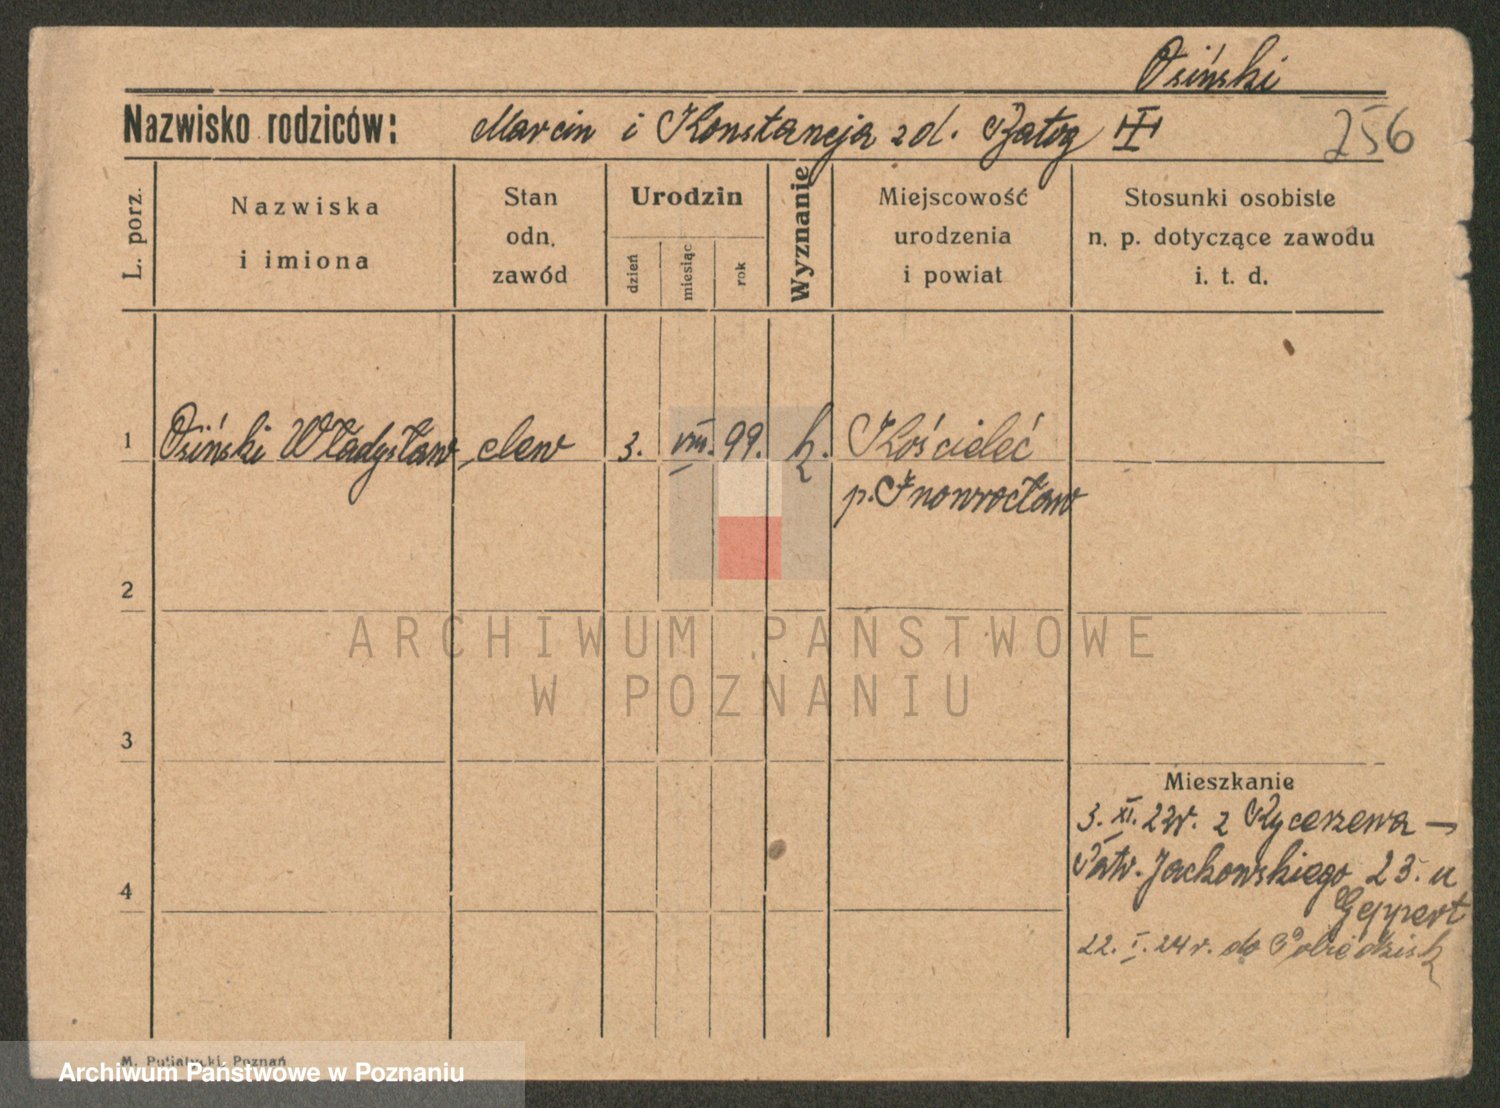 Osiński
Nazwisko rodziców: Marcin i Konstancja zd. Batog III
256
L. porz.
Nazwiska
i imiona
Stan
odn.
zawód
Urodzin
dzień
miesiąc
rok
Wyznanie
Miejscowość
urodzenia
i powiat
Stosunki osobiste
n. p. dotyczące zawodu
i. t. d.
1 Osiński Władysław elew 3. VIII. 99. k. Kościelec
p. Inowrocław
2
3
4
Mieszkanie
3. XI. 22r. z Rycerzewa —
Patr. Jackowskiego 23. u
Geppert
22. I. 24 r. do Pobiedzisk
M. Putiatycki, Poznań
ARCHIWUM PAŃSTWOWE
W POZNANIU
Archiwum Państwowe w Poznaniu